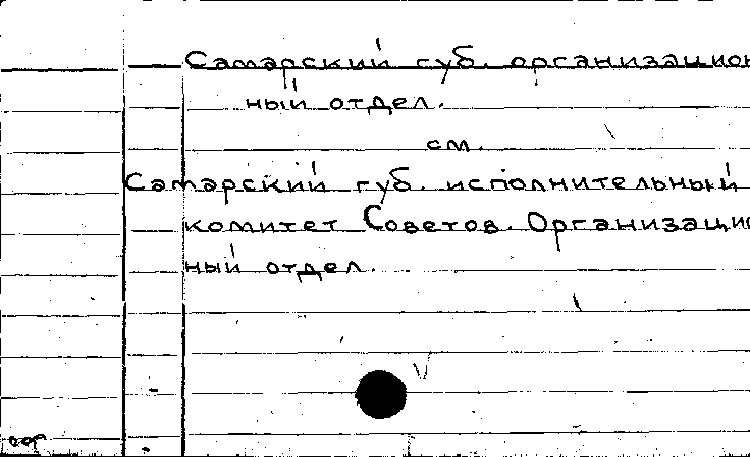 Самарский губ. организацион
ный отдел.
см.
Самарский губ. исполнительный
комитет Советов. Организацио
ный отдел.